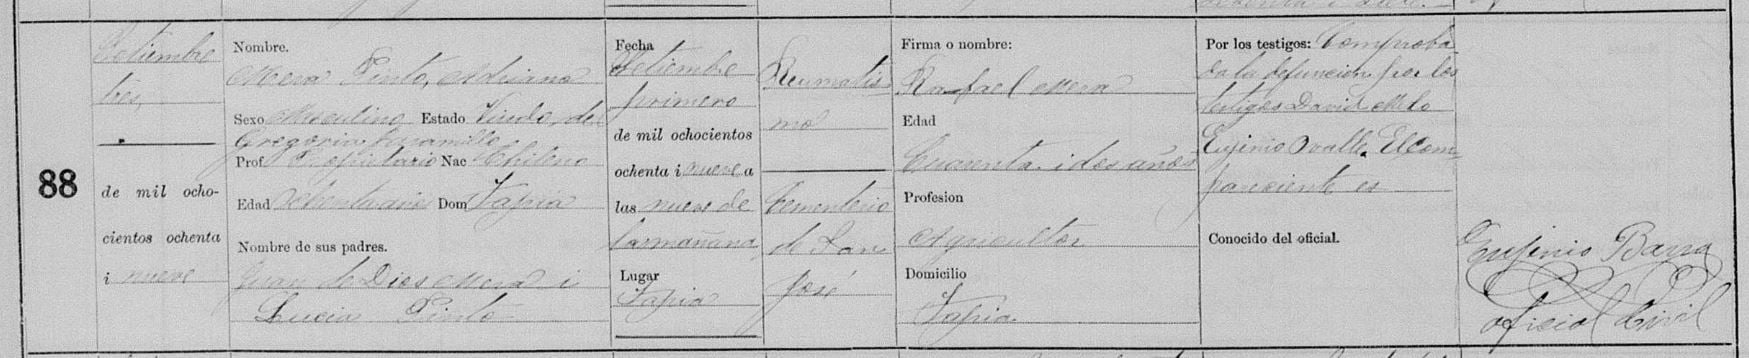 88
Setiembre
tres
de mil ocho-
cientos ochenta
i nueve
Nombre.
Mera Pinto, Adriano
Sexo Masculino Estado Viudo, de
Gregoria Jaramillo
Prof. Propietario Nac Chileno
Edad ochenta años Dom Tapia
Nombre de sus padres.
Juan de Dios Mera i
Lucia Pinto
Fecha
Setiembre
primero
de mil ochocientos
ochenta i nueve a
las nueve de
la mañana
Lugar
Tapia
Reumatis
mo
Cementerio
de San
José
Firma o nombre:
Rafael Mera
Edad
Cuarenta i dos años
Profesion
Agricultor
Domicilio
Tapia
Por los testigos: Comproba
da la defuncion por los
testigos David Melo
Eujenio Ovalle. El com-
pareciente es
Conocido del oficial.
Eujenio Barra
oficial Civil